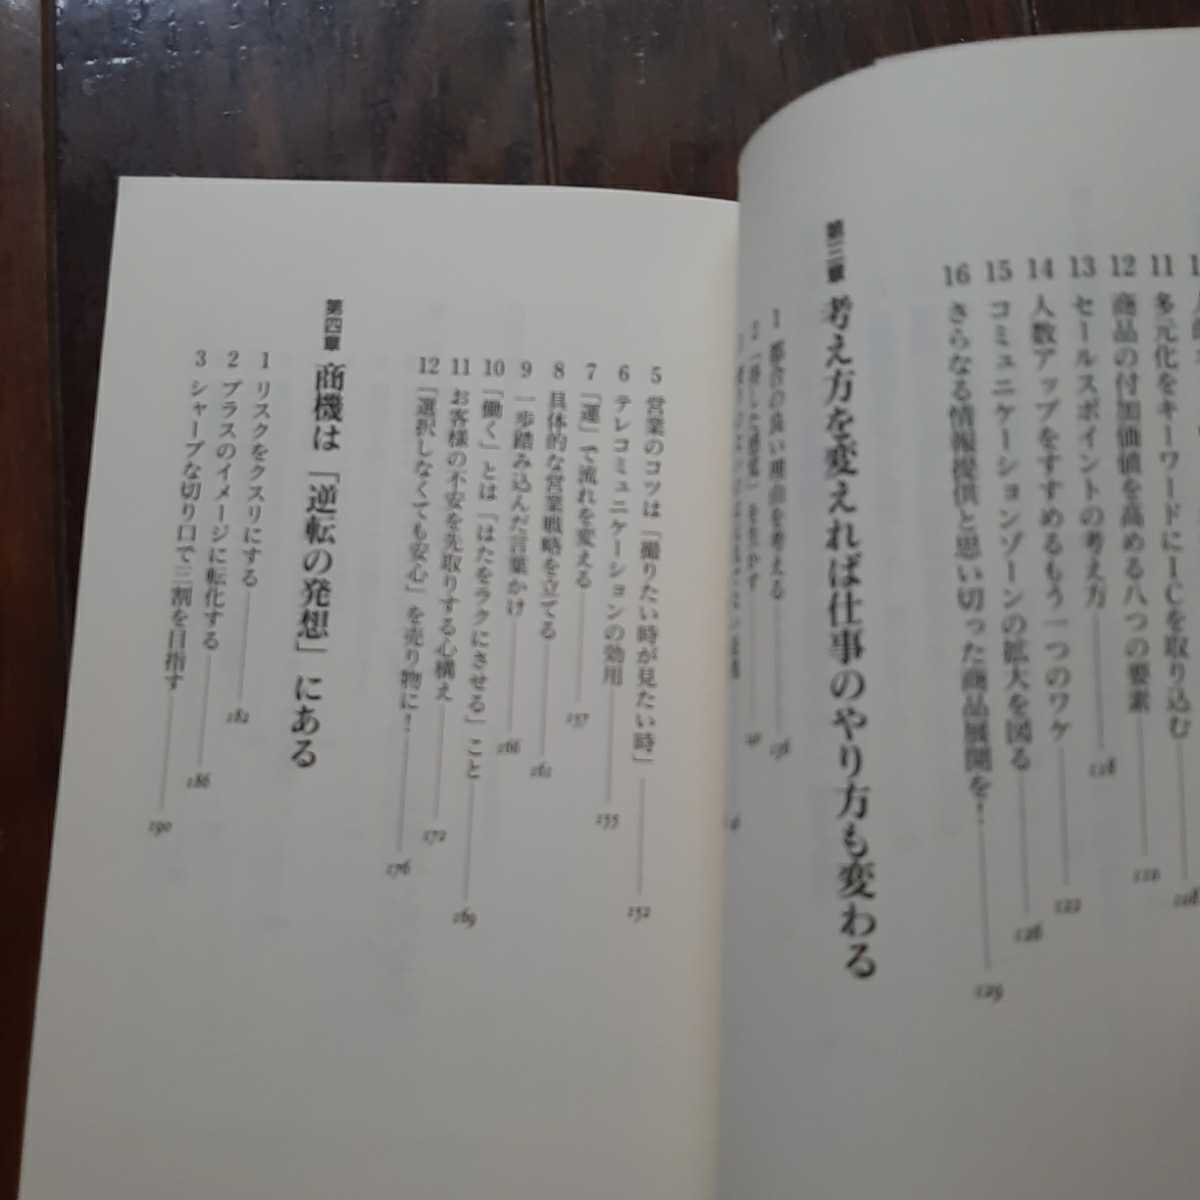 11 多元化をキーワードにICを取り込む 108
12 商品の付加価値を高める八つの要素 112
13 セールスポイントの考え方 118
14 人数アップをすすめるもう一つのワケ 122
15 コミュニケーションゾーンの拡大を図る 126
16 さらなる情報提供と思い切った商品展開を! 129
第三章 考え方を変えれば仕事のやり方も変わる
1 都合の良い理由を考える 136
2
5 営業のコツは「撮りたい時が見たい時」 152
6 テレコミュニケーションの効用 155
7 「運」で流れを変える 157
8 具体的な営業戦略を立てる 161
9 一歩踏み込んだ言葉かけ 166
10 「働く」とは「はたをラクにさせる」こと 169
11 お客様の不安を先取りする心構え 172
12 「選択しなくても安心」を売り物に! 176
第四章 商機は「逆転の発想」にある
1 リスクをクスリにする 182
2 プラスのイメージに転化する 186
3 シャープな切り口で三割を目指す 190